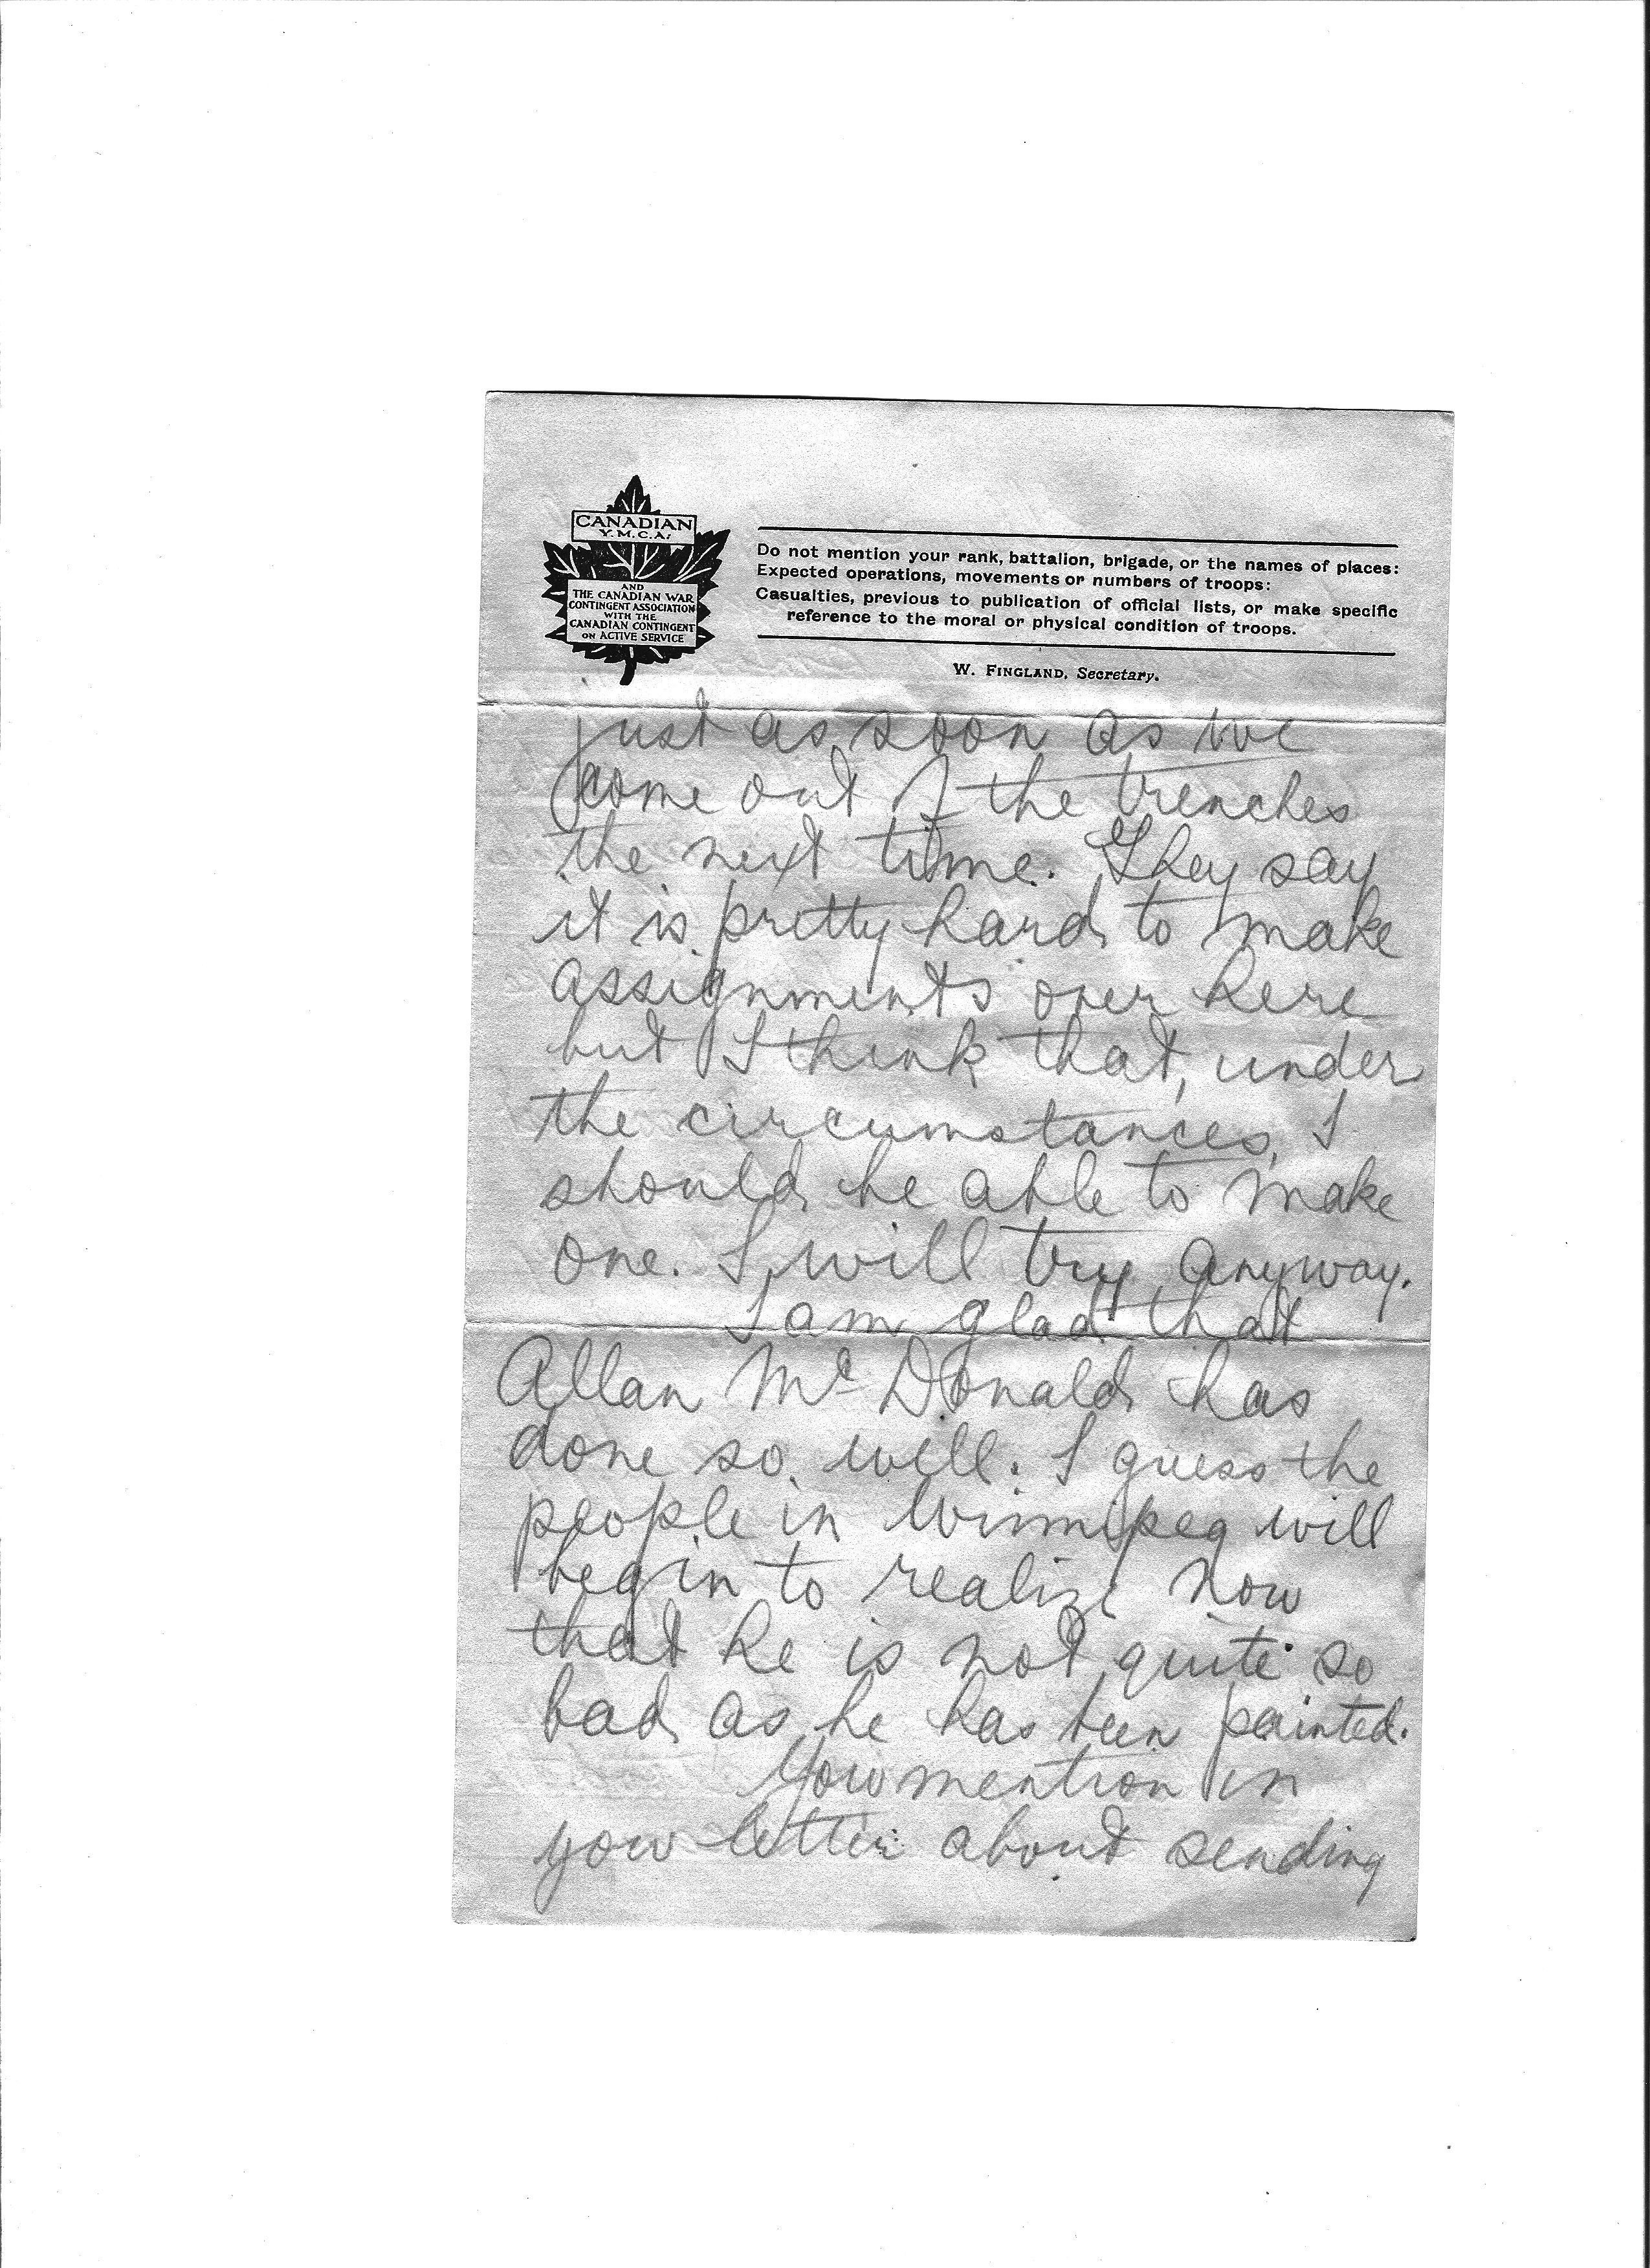 CANADIAN
Y.M.C.A.
AND
THE CANADIAN WAR
CONTINGENT ASSOCIATION
WITH THE
CANADIAN CONTINGENT
ON ACTIVE SERVICE
Do not mention your rank, battalion, brigade, or the names of places:
Expected operations, movements or numbers of troops:
Casualties, previous to publication of official lists, or make specific
reference to the moral or physical condition of troops.
W. FINGLAND, Secretary.
just as soon as we
come out of the trenches
the next time. They say
it is pretty hard to make
assignments over here
but I think that, under
the circumstances, I
should be able to make
one. I will try anyway.
I am glad that
Allan McDonald has
done so well. I guess the
people in Winnipeg will
begin to realize now
that he is not quite so
bad as he has been painted.
You mention in
your letter about sending